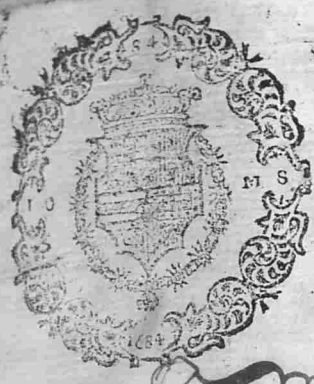 84
10 MS
1684